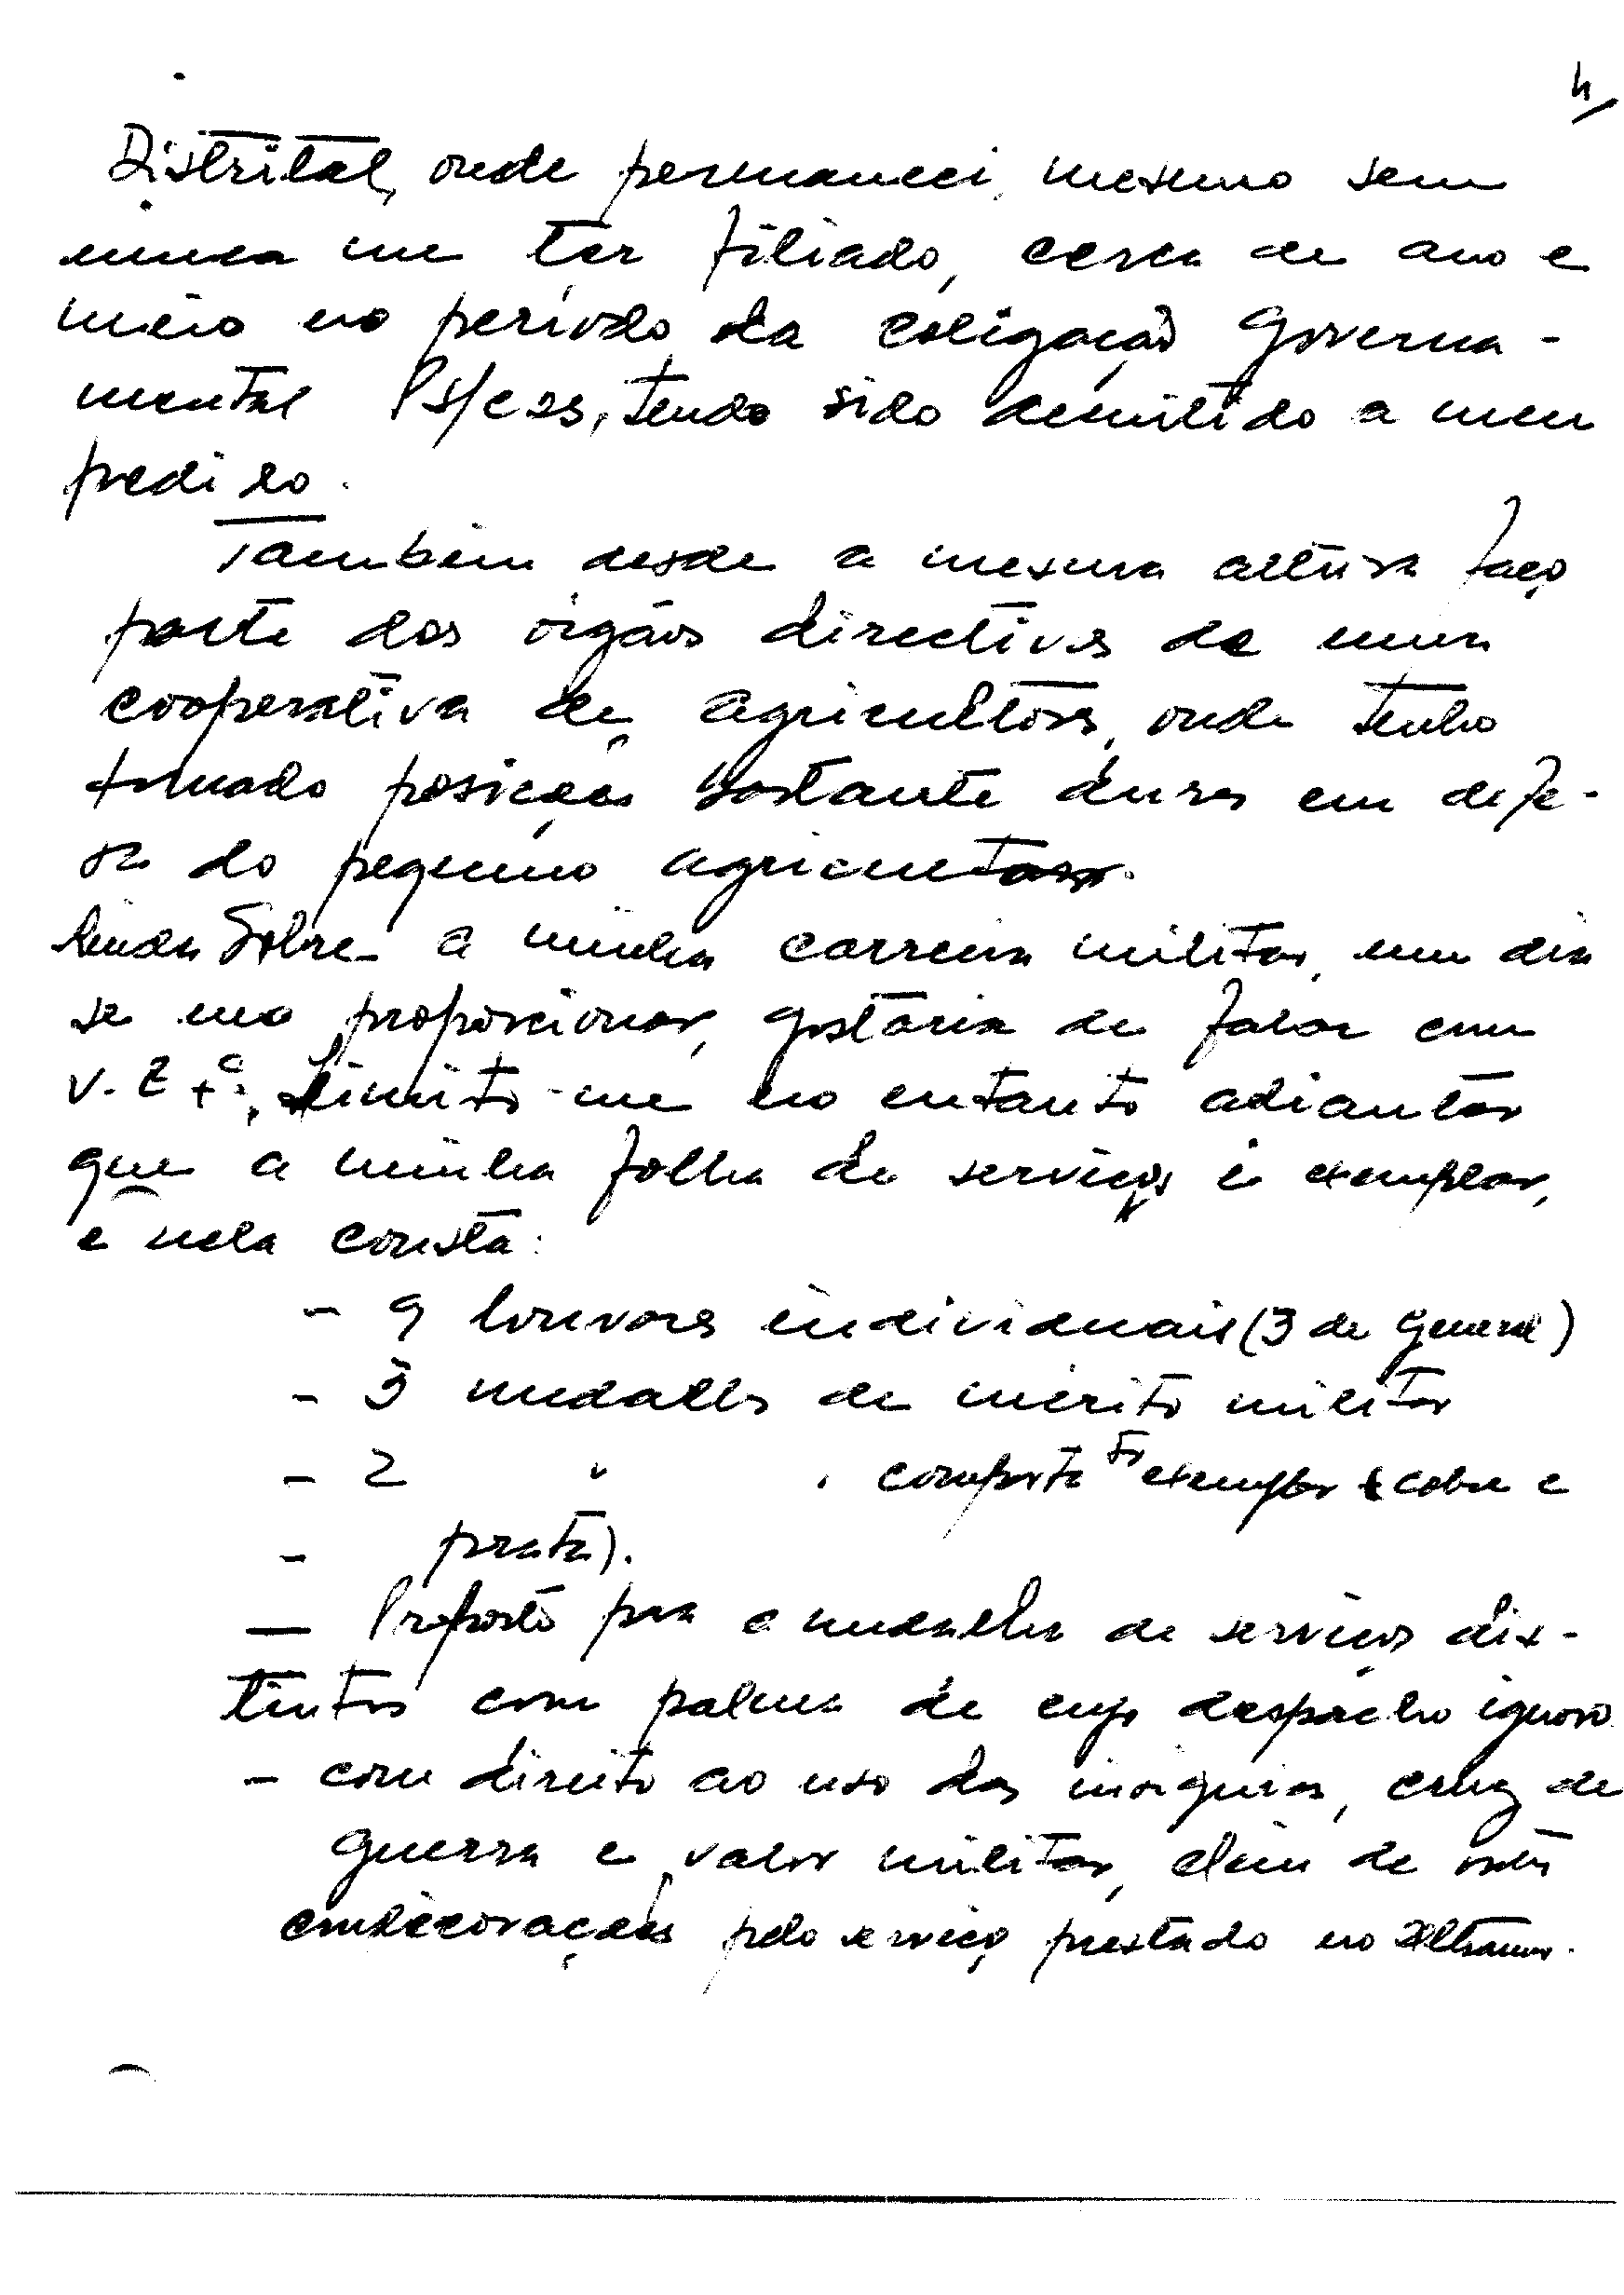 4
Distrital, onde permaneci, mesmo sem
nunca me ter filiado, cerca de ano e
meio no período da coligação Governa-
mental PS/CDS, tendo sido demitido a meu
pedido.
Também desde a mesma altura faço
parte dos órgãos directivos de uma
cooperativa de agricultores, onde tenho
tomado posições bastante duras em defe-
sa do pequeno agricultor.
Ainda Sobre a minha carreira militar, um dia
se mo proporcionar, gostaria de falar com
V. Exª., limito-me no entanto adiantar
que a minha folha de serviços é exemplar,
e nela consta:
- 9 louvores individuais (3 de General)
- 3 medalhas de mérito militar
- 2 " " comportamto exemplar (cobre e
- prata).
— Proposto para a medalha de serviços dis-
tintos com palma de cujo despacho ignoro.
- com direito ao uso das insígnias, cruz de
guerra e valor militar, além de outras
condecorações pelo serviço prestado no Ultramar.